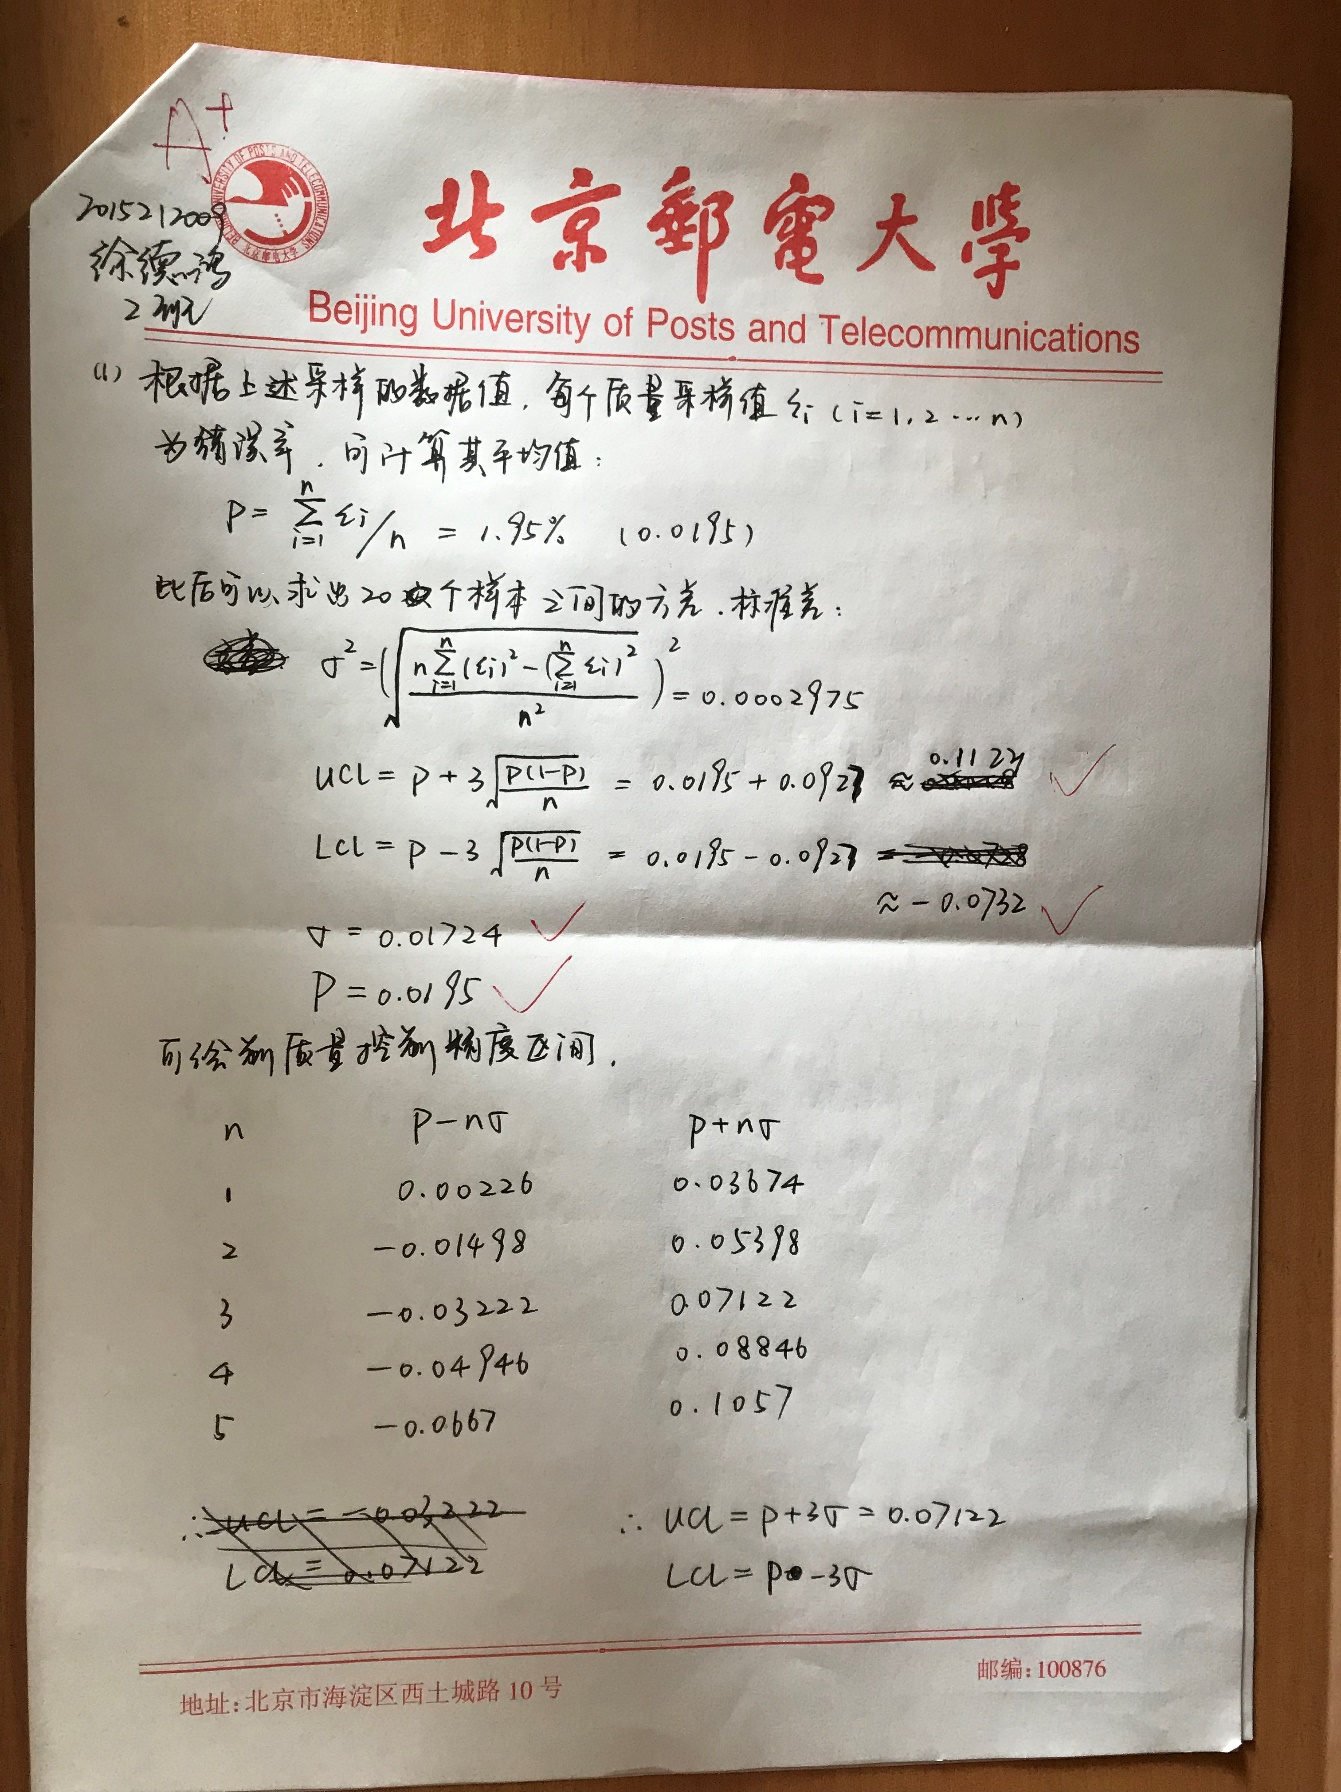 A+
2015212009
徐德鸿
2班
北京郵電大學
Beijing University of Posts and Telecommunications
(1) 根据上述采样的数据值，每个质量采样值 εi (i=1, 2 … n)
为错误率，可计算其平均值：
P = ∑_{i=1}^{n} εi / n = 1.95% (0.0195)
此后可以求出20个样本之间的方差、标准差：
σ² = (√((n∑_{i=1}^{n}(εi)² - (∑_{i=1}^{n} εi)²) / n²))² = 0.0002975
UCL = P + 3√(P(1-P)/n) = 0.0195 + 0.0927 ≈ 0.1122
LCL = P - 3√(P(1-P)/n) = 0.0195 - 0.0927
≈ -0.0732
σ = 0.01724
P = 0.0195
可绘制质量控制精度区间.
n P-nσ P+nσ
1 0.00226 0.03674
2 -0.01498 0.05398
3 -0.03222 0.07122
4 -0.04946 0.08846
5 -0.0667 0.1057
∴ UCL = -0.03222
LCL = 0.07122
∴ UCL = P+3σ = 0.07122
LCL = P-3σ
地址:北京市海淀区西土城路 10 号
邮编:100876